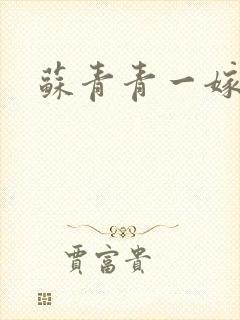 蘇青青一嫁
賈富貴